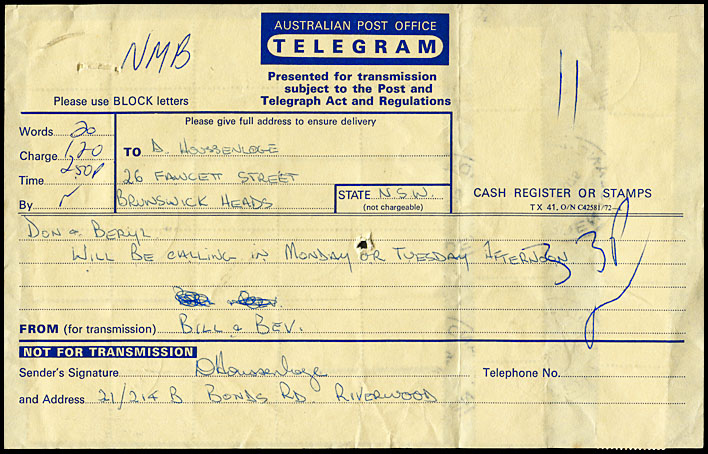 AUSTRALIAN POST OFFICE
TELEGRAM
NMB
Presented for transmission
subject to the Post and
Telegraph Act and Regulations
Please use BLOCK letters
Words 20
Charge 1.20
Time 2.50P
By
Please give full address to ensure delivery
TO D. HOUSSENLOGE
26 FAWCETT STREET
BRUNSWICK HEADS
STATE N.S.W.
(not chargeable)
CASH REGISTER OR STAMPS
TX 41, O/N C42581/72
DON & BERYL
WILL BE CALLING IN MONDAY OR TUESDAY AFTERNOON
FROM (for transmission) BILL & BEV.
NOT FOR TRANSMISSION
Sender's Signature DHoussenloge
Telephone No.
and Address 21/214 B BONDS RD RIVERWOOD